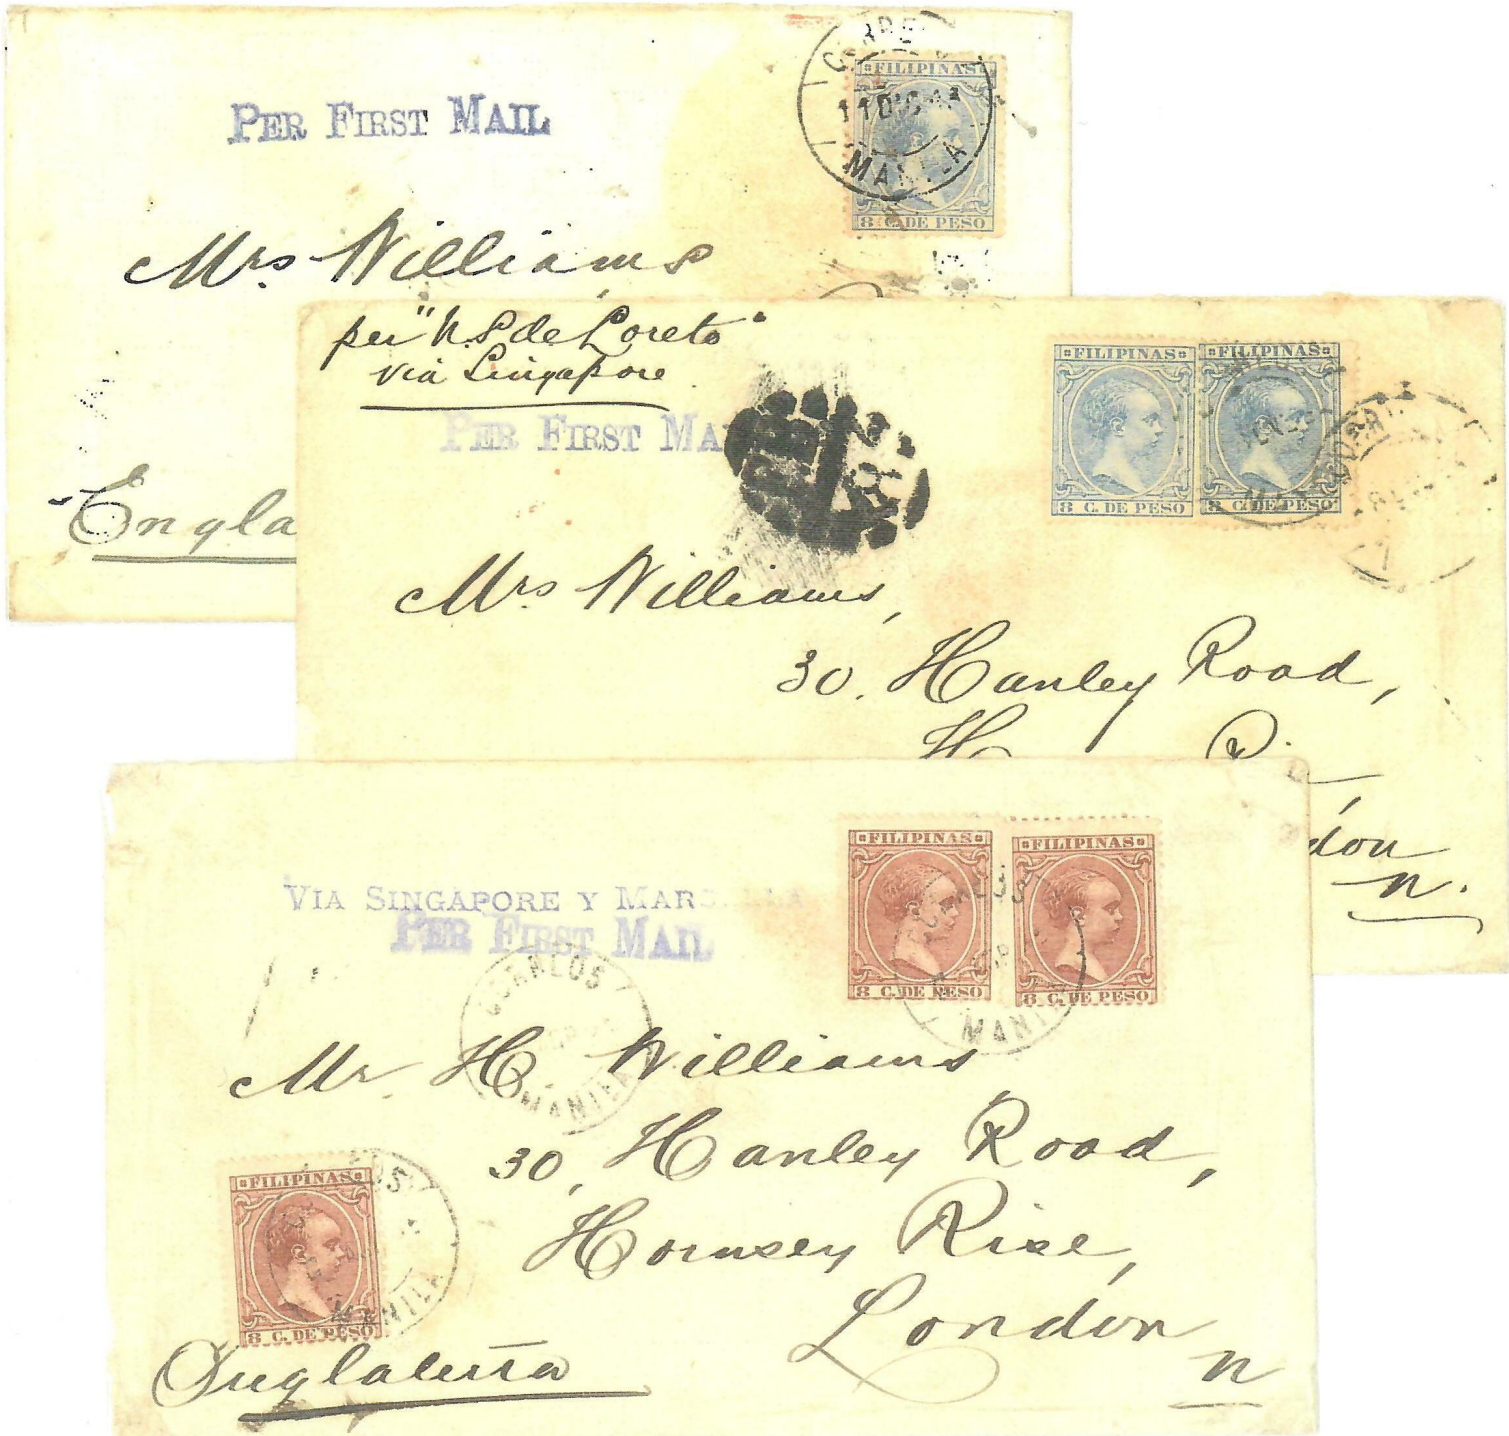 PER FIRST MAIL
FILIPINAS
11 DIC
MANILA
8 C. DE PESO
Mrs Williams
Engla
per "N S de Loreto"
via Singapore
PER FIRST MA
FILIPINAS
FILIPINAS
8 C. DE PESO
8 C. DE PESO
Mrs Williams,
30, Hanley Road,
don
N.
VIA SINGAPORE Y MAR
PER FIRST MAIL
FILIPINAS
FILIPINAS
8 C. DE PESO
8 C. DE PESO
MANILA
CORREOS
MANILA
Mr H. Williams
30, Hanley Road,
Hornsey Rise,
London
N
FILIPINAS
8 C. DE PESO
MANILA
Inglaterra